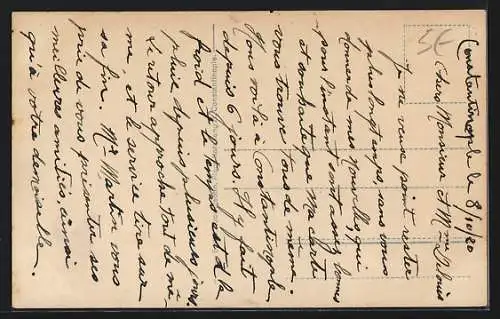 Constantinople le 8/10/20
Chers Monsieur et Mme
Je ne veux point rester
plus longtemps, sans vous
donner de mes nouvelles, qui
pour l'instant sont assez bonnes
et souhaite que ma carte
vous trouve tous de même.
Nous voilà à Constantinople
depuis 6 jours. Il y fait
froid et le temps est à la
pluie depuis plusieurs jours.
Le retour approche tout de mê-
me et le service tire sur
sa fin. Mr Martin vous
prie de vous présenter ses
meilleures amitiés, ainsi
qu'à votre demoiselle.
5€
Constantinople